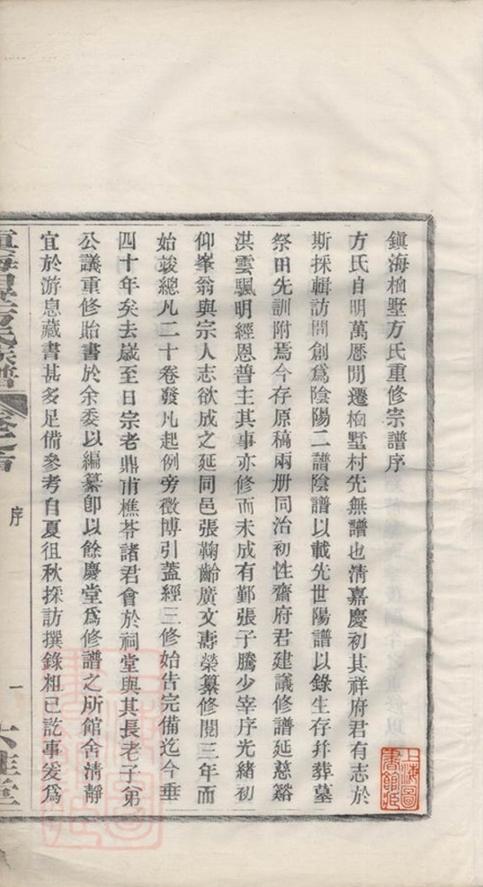 鎮海柏墅方氏重修宗譜序
方氏自明萬厯閒遷柏墅村先無譜也清嘉慶初其祥府君有志於
斯採輯訪問創爲陰陽二譜陰譜以載先世陽譜以錄生存幷葬墓
祭田先訓附焉今存原稿兩册同治初性齋府君建議修譜延慈谿
洪雲驪明經恩普主其事亦修而未成有鄞張子騰少宰序光緒初
仰峯翁與宗人志欲成之延同邑張鞠齡廣文壽榮纂修閱三年而
始竣總凡二十卷發凡起例旁徵博引蓋經三修始告完備迄今垂
四十年矣去歲至日宗老鼎甫樵苓諸君會於祠堂與其長老子弟
公議重修貽書於余委以編纂卽以餘慶堂爲修譜之所館舍清靜
宜於游息藏書甚多足備參考自夏徂秋採訪撰錄粗已訖事爰爲
鎮海柏墅方氏族譜
卷之首
序
一
六桂堂
上海圖書館藏